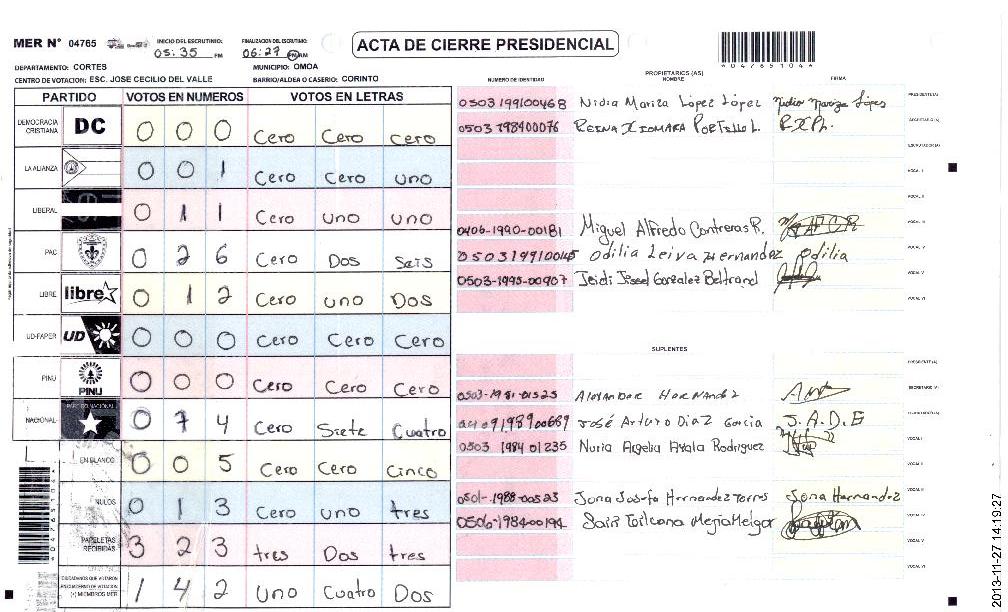 MER N° 04765
INICIO DEL ESCRUTINIO:
05:35 PM
FINALIZACION DEL ESCRUTINIO:
06:27 PM AM
ACTA DE CIERRE PRESIDENCIAL
*04765104*
DEPARTAMENTO: CORTES
MUNICIPIO: OMOA
CENTRO DE VOTACION: ESC. JOSE CECILIO DEL VALLE
BARRIO/ALDEA O CASERIO: CORINTO
PARTIDO VOTOS EN NUMEROS VOTOS EN LETRAS
DEMOCRACIA CRISTIANA DC 0 0 0 Cero Cero cero
LA ALIANZA 0 0 1 Cero Cero uno
LIBERAL 0 1 1 Cero uno uno
PAC 0 2 6 Cero Dos Seis
LIBRE libre 0 1 2 Cero uno Dos
UD-FAPER UD 0 0 0 Cero Cero Cero
PINU PINU 0 0 0 Cero Cero Cero
NACIONAL PARTIDO NACIONAL 0 7 4 Cero Siete Cuatro
EN BLANCO 0 0 5 Cero Cero Cinco
NULOS 0 1 3 Cero uno tres
PAPELETAS RECIBIDAS 3 2 3 tres Dos tres
CIUDADANOS QUE VOTARON EN CUADERNO DE VOTACION (+) MIEMBROS MER 1 4 2 Uno Cuatro Dos
NUMERO DE IDENTIDAD
PROPIETARIOS (AS)
NOMBRE
FIRMA
0503199100468 Nidia Mariza López López Nidia Mariza López PRESIDENTE(A)
0503 198400076 REINA XIOMARA PORTILLO L. R.X.P.L. SECRETARIO (A)
ESCRUTADOR(A)
VOCAL I
VOCAL II
0406-1990-00181 Miguel Alfredo Contreras R. VOCAL III
0503199100145 Odilia Leiva Hernandez Odilia VOCAL IV
0503-1995-00907 Jeidi Jissel Gonzalez Beltrand VOCAL V
VOCAL VI
SUPLENTES
PRESIDENTE (A)
0503-1981-01525 Alexander Hernandez SECRETARIO (A)
José Arturo Diaz Garcia J.A.D.E
0503 1984 01235 Nuria Argelia Ayala Rodriguez VOCAL I
VOCAL II
0501-1988-00523 Jona Josefa Hernandez Torres Jona Hernandez VOCAL III
0506-1984-00194 VOCAL IV
VOCAL V
VOCAL VI
*04765104*
2013-11-27 14:19:27